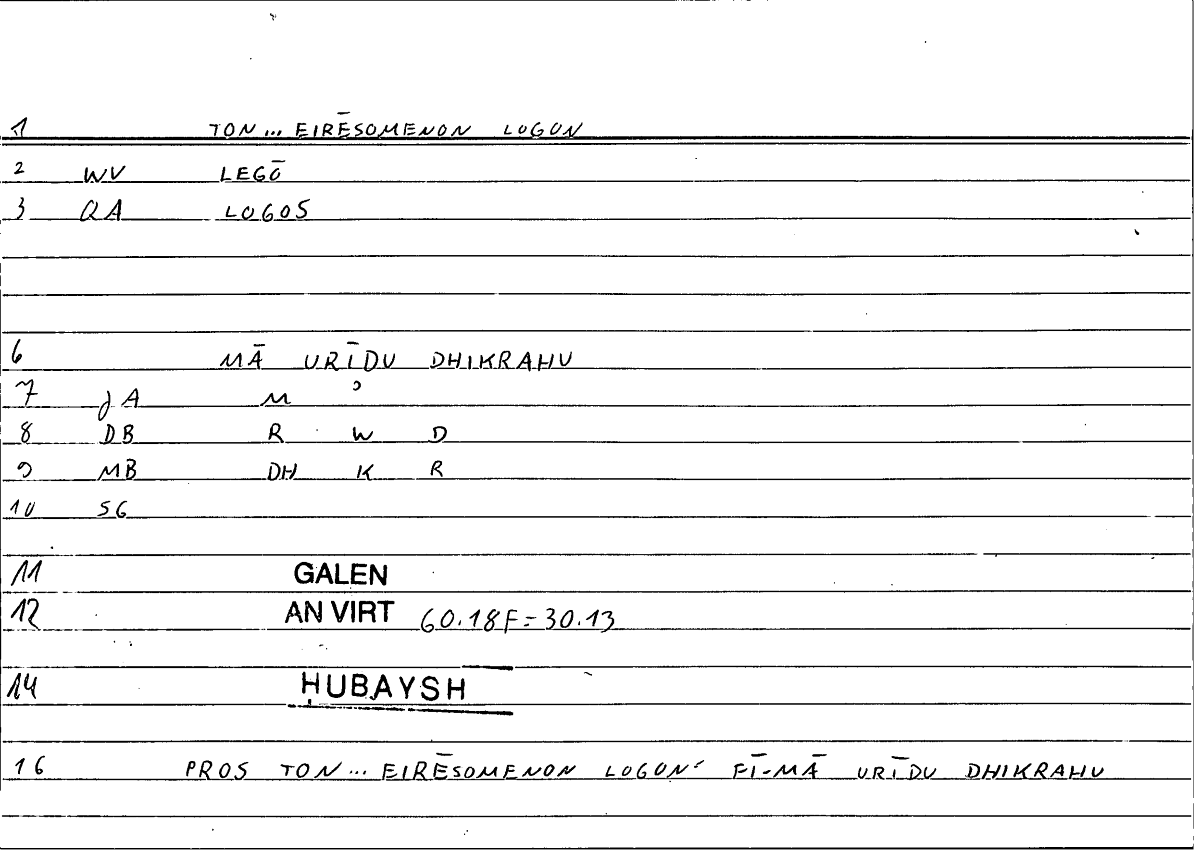 1 TON... EIRĒSOMENON LOGON
2 WV LEGŌ
3 QA LOGOS
6 MĀ URĪDU DHIKRAHU
7 JA M ʾ
8 DB R W D
9 MB DH K R
10 SG
11 GALEN
12 AN VIRT 60.18F=30.13
14 ḤUBAYSH
16 PROS TON... EIRĒSOMENON LOGON: FĪ-MĀ URĪDU DHIKRAHU